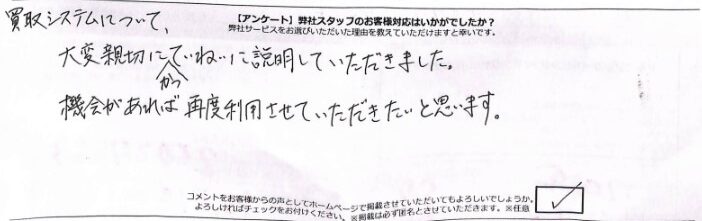 【アンケート】弊社スタッフのお客様対応はいかがでしたか？
弊社サービスをお選びいただいた理由を教えていただけますと幸いです。
買取システムについて、
大変親切にかつていねいに説明していただきました。
機会があれば再度利用させていただきたいと思います。
コメントをお客様からの声としてホームページで掲載させていただいてもよろしいでしょうか。
よろしければチェックをお付けください。※掲載は必ず匿名とさせていただきます。※任意